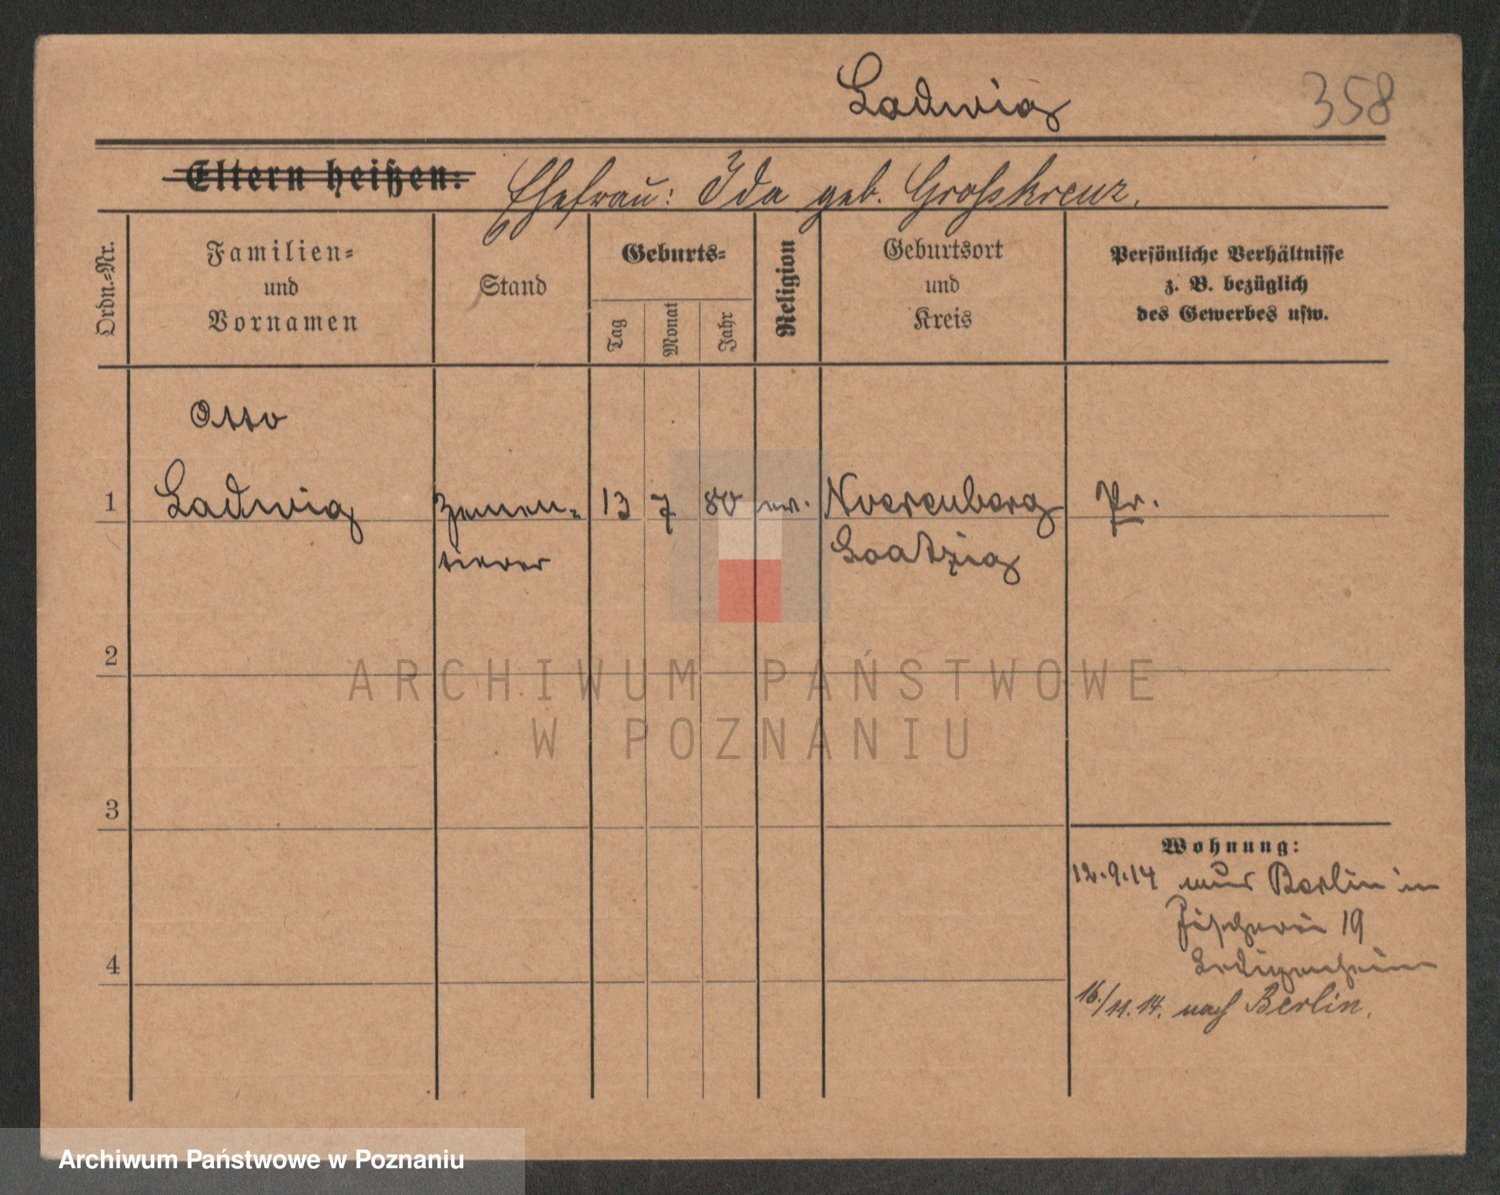 Ladwig
358
Eltern heißen:
Ehefrau: Ida geb. Grosskreuz.
Ordn.=Nr.
Familien=
und
Vornamen
Stand
Geburts=
Tag
Monat
Jahr
Religion
Geburtsort
und
Kreis
Persönliche Verhältnisse
z. B. bezüglich
des Gewerbes usw.
Otto
1
Ladwig
Zemen=
tierer
13
7
80
ev.
Noerenberg
Saatzig
Pr.
2
ARCHIWUM PAŃSTWOWE
W POZNANIU
3
Wohnung:
12.9.14 Berlin in
Fischerei 19
Ledigenheim
4
16./11.14. nach Berlin.
Archiwum Państwowe w Poznaniu